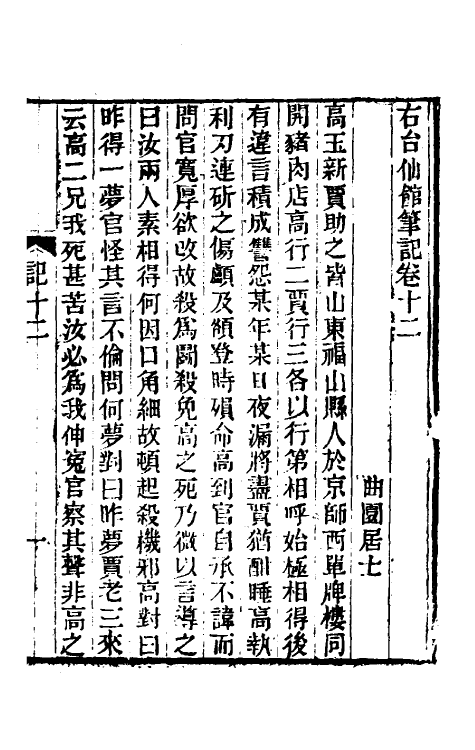 右台仙館筆記卷十二
曲園居士
高玉新賈助之皆山東福山縣人於京師西單牌樓同
開豬肉店高行二賈行三各以行第相呼始極相得後
有違言積成讐怨某年某日夜漏將盡賈猶酣睡高執
利刃連斫之傷顱及頟登時殞命高到官自承不諱而
問官寬厚欲改故殺爲鬭殺免高之死乃微以言導之
曰汝兩人素相得何因口角細故頓起殺機邪高對曰
昨得一夢官怪其言不倫問何夢對曰昨夢賈老三來
云高二兄我死甚苦汝必爲我伸寃官察其聲非高之
記十二
一